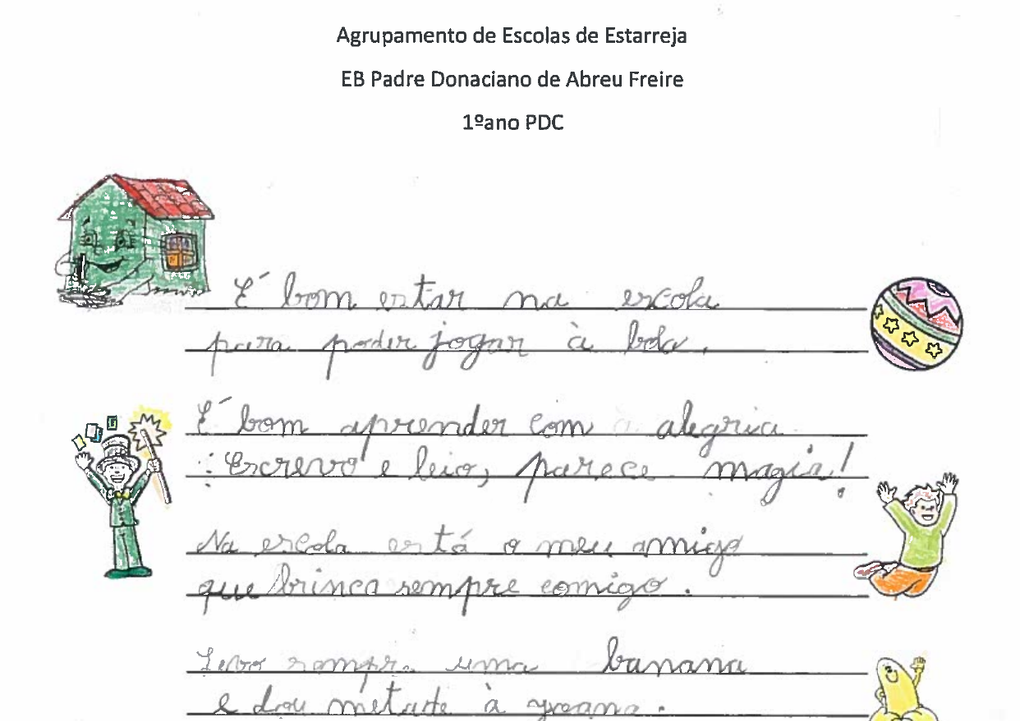 Agrupamento de Escolas de Estarreja
EB Padre Donaciano de Abreu Freire
1ºano PDC
É bom estar na escola
para poder jogar à bola.
É bom aprender com a alegria
Escrevo e leio, parece magia!
Na escola está o meu amigo
que brinca sempre comigo.
Levo sempre uma banana
e dou metade à